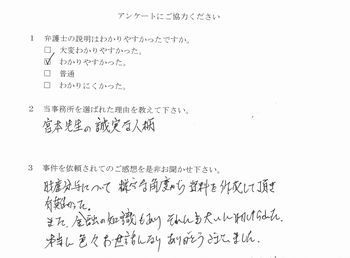 アンケートにご協力ください
1 弁護士の説明はわかりやすかったですか。
□ 大変わかりやすかった。
☑ わかりやすかった。
□ 普通
□ わかりにくかった。
2 当事務所を選ばれた理由を教えて下さい。
宮本先生の誠実な人柄
3 事件を依頼されてのご感想を是非お聞かせ下さい。
財産分与について 様々な角度から 資料を作成して頂き
また、金融の知識もあり それにも大いに助けられた。
本当に色々お世話になり ありがとうございました。